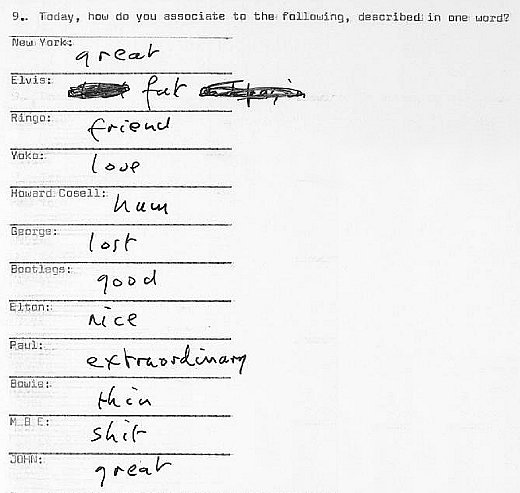 9. Today, how do you associate to the following, described in one word?
New York:
great
Elvis:
fat
Ringo:
friend
Yoko:
love
Howard Cosell:
hum
George:
lost
Bootlegs:
good
Elton:
nice
Paul:
extraordinary
Bowie:
thin
M B E:
shit
JOHN:
great